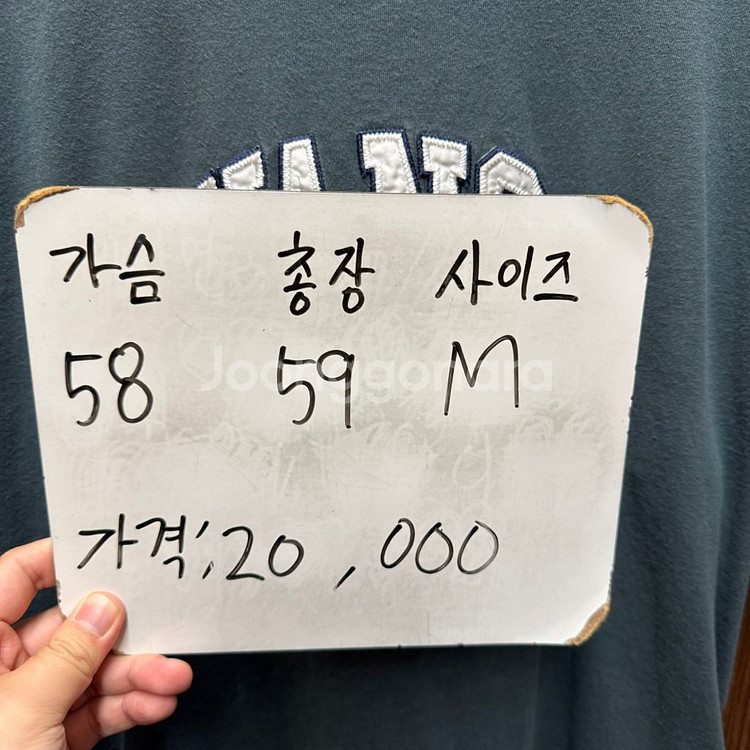 가슴 총장 사이즈
58 59 M
Joonggonara
가격; 20,000